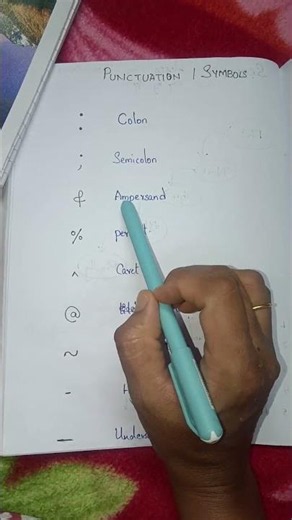 PUNCTUATION / SYMBOLS
: Colon
; Semicolon
& Ampersand
%
^ Caret
@
~
-
_